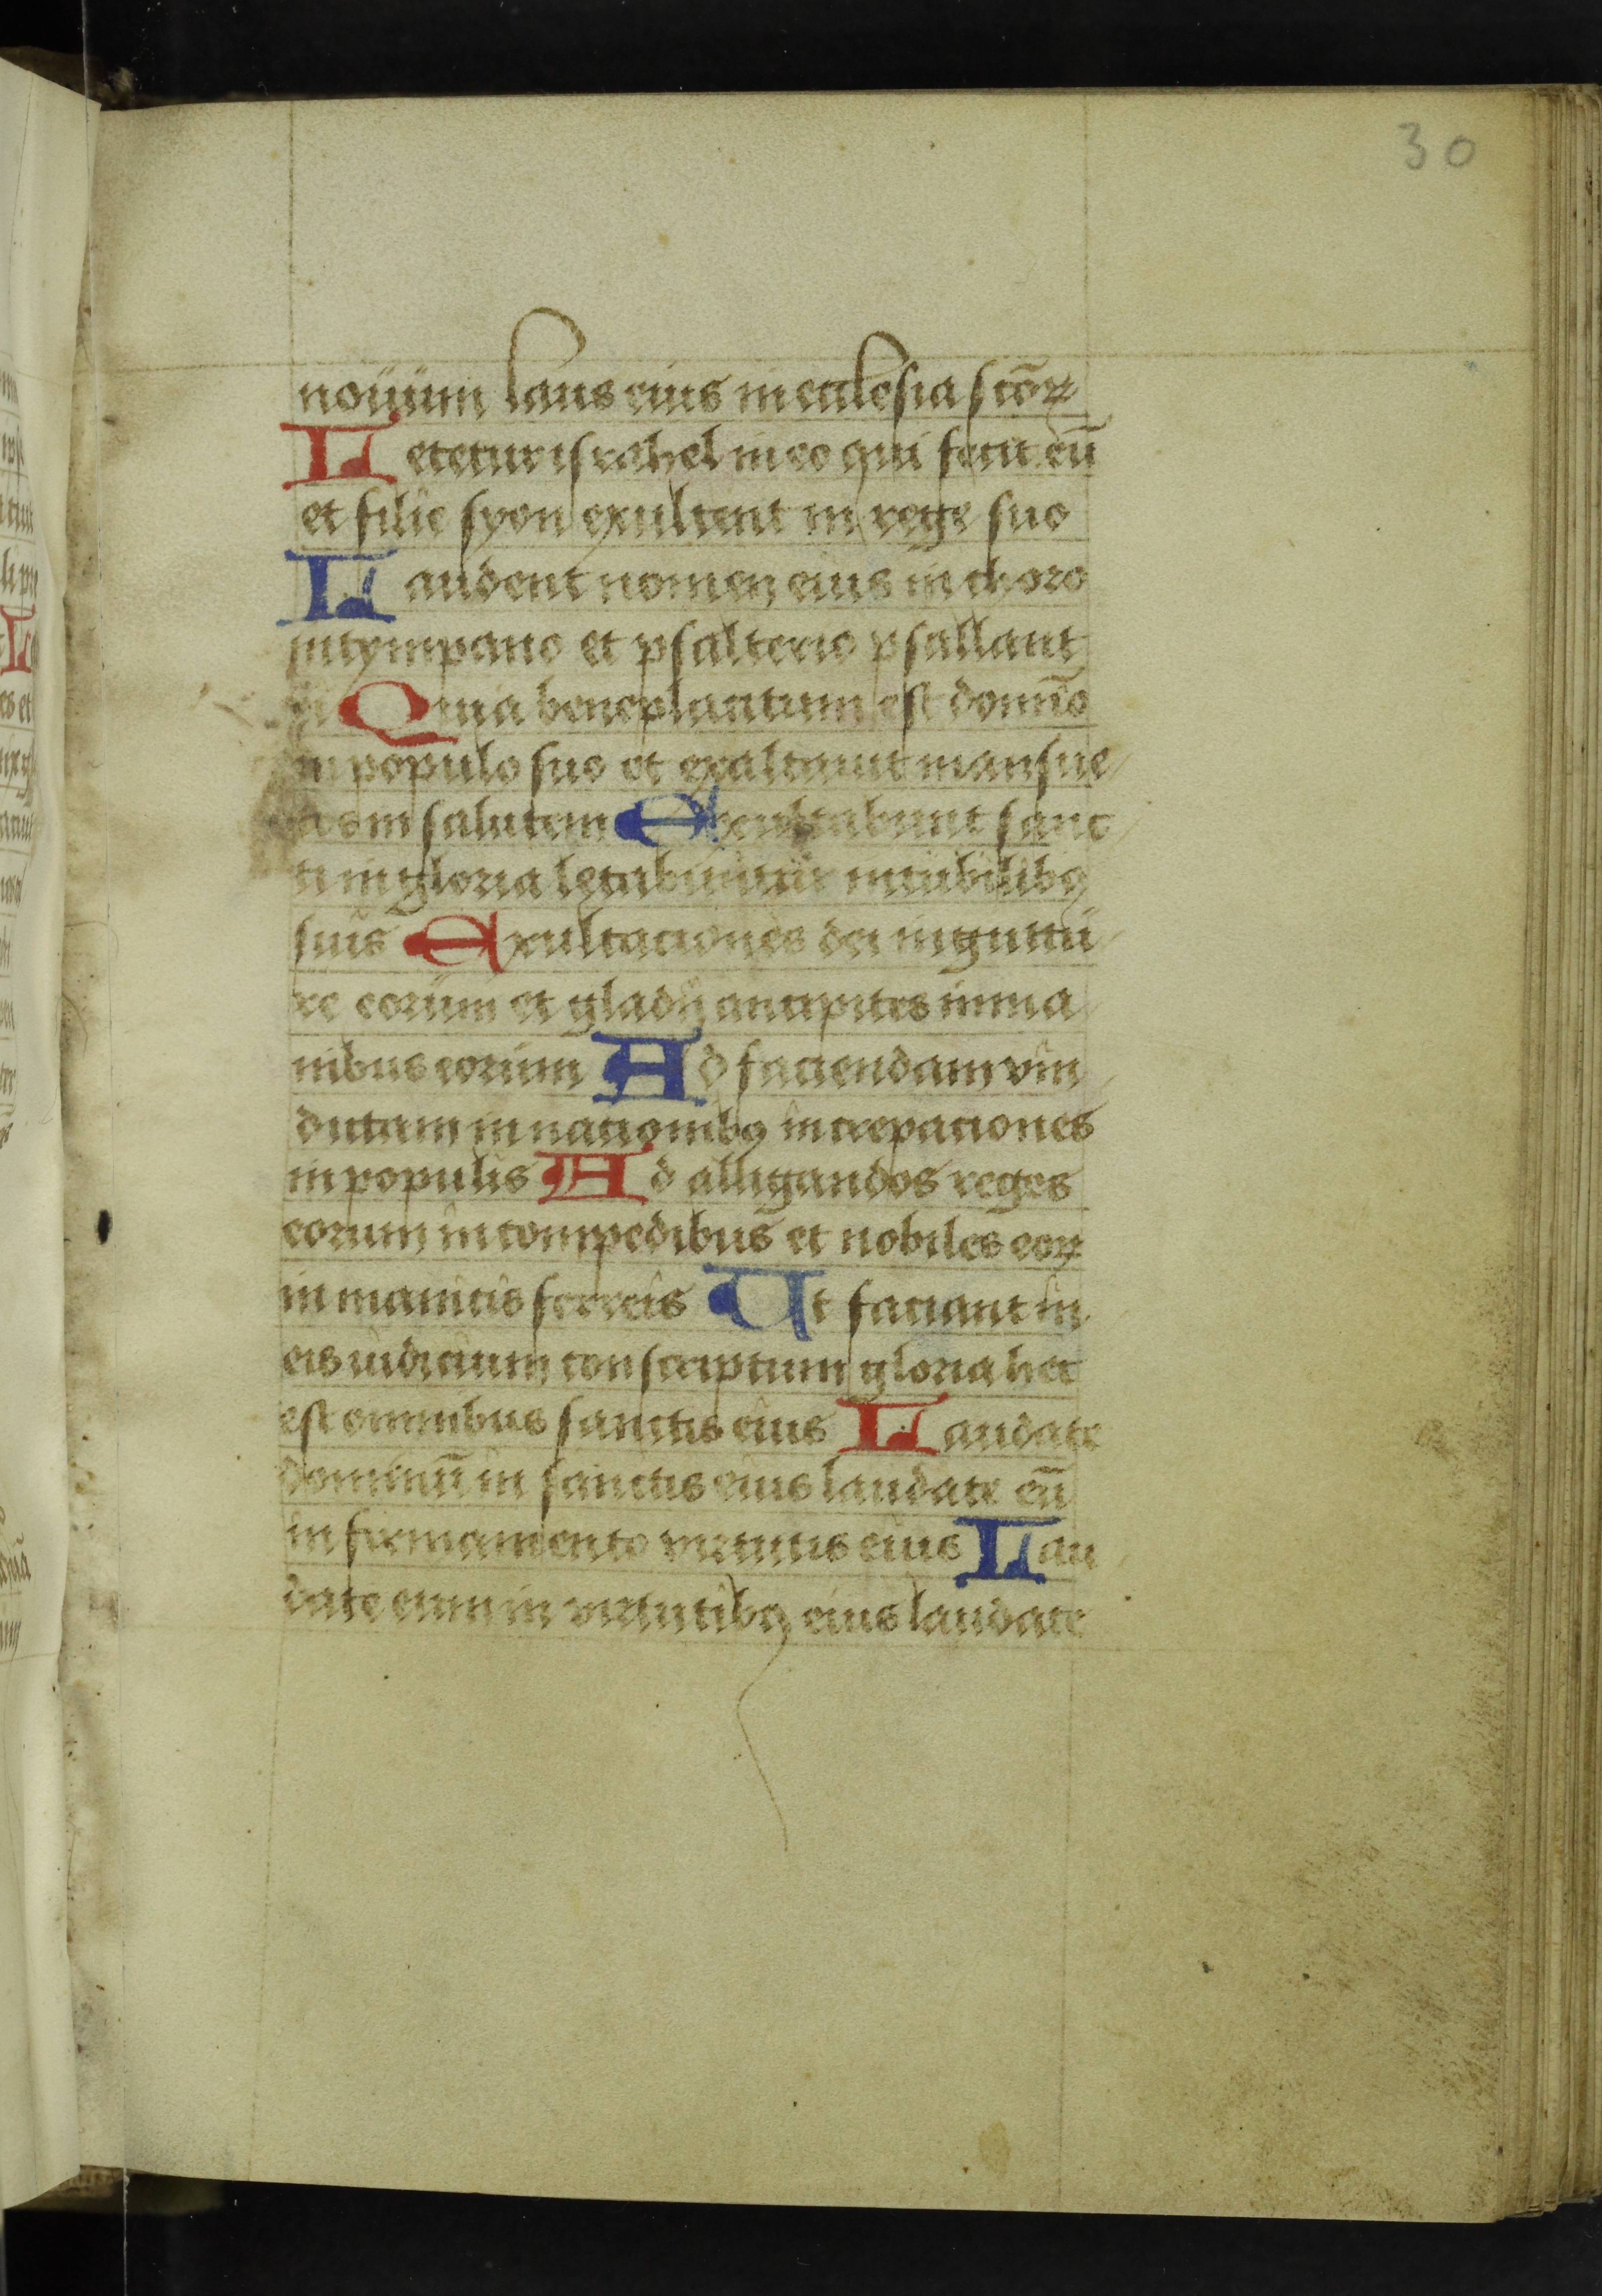 30
nouum laus eius in ecclesia scōꝝ
Letetur israhel in eo qui fecit eū
et filie syon exultent in rege suo
Laudent nomen eius in choro
in tympano et psalterio psallant
ei Quia beneplacitum est domīo
in populo suo et exaltauit mansue
tos in salutem Exultabunt sanc
ti in gloria letabuntur in cubilibꝯ
suis Exultaciones dei in guttu
re eorum et gladij ancipites in ma
nibus eorum Ad faciendam vin
dictam in nacionibꝯ increpaciones
in populis Ad alligandos reges
eorum in compedibus et nobiles eoꝝ
in manicis ferreis Ut faciant in
eis iudicium conscriptum gloria hec
est omnibus sanctis eius Laudate
dominū in sanctis eius laudate eū
in firmamento virtutis eius Lau
date eum in virtutibꝯ eius laudate